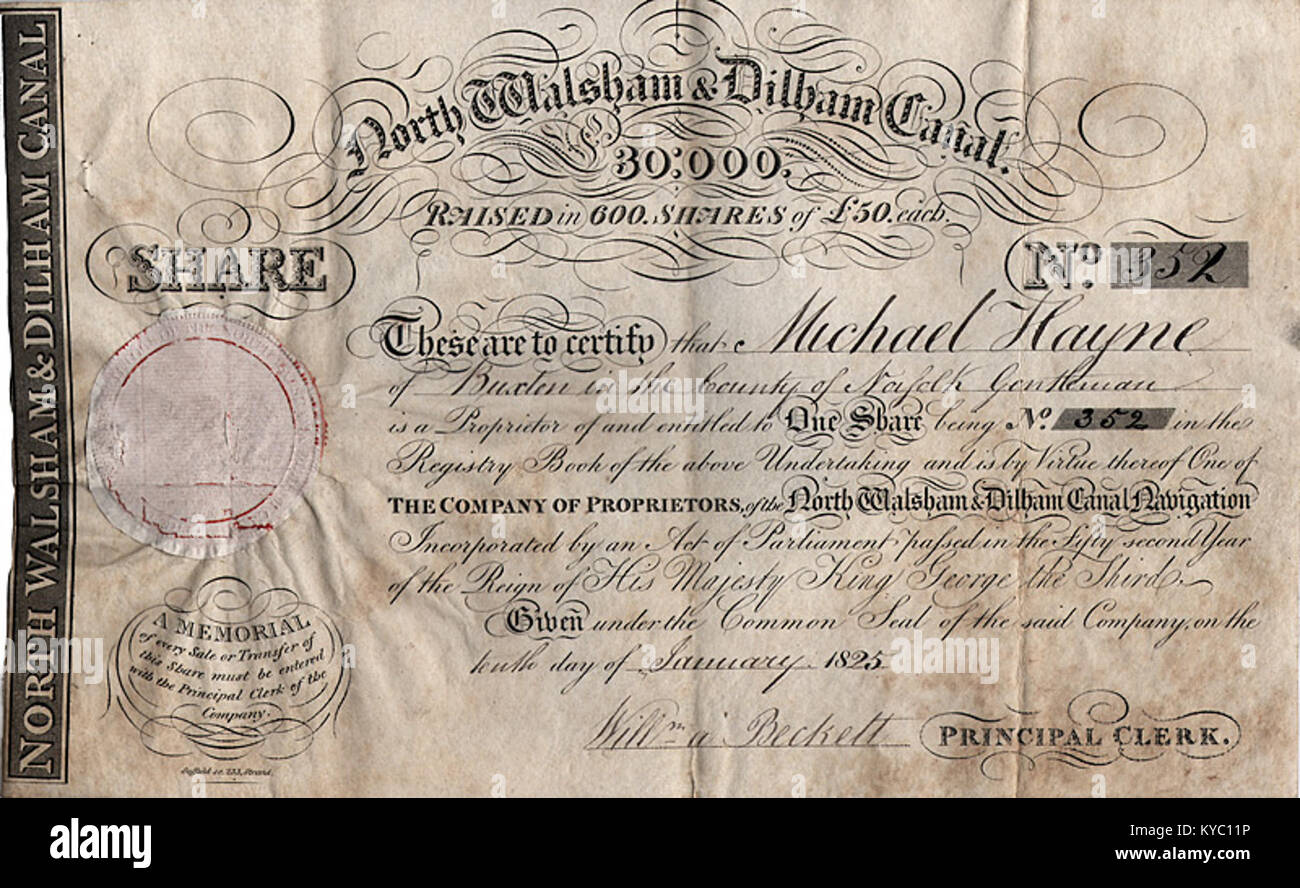 NORTH WALSHAM & DILHAM CANAL
North Walsham & Dilham Canal.
30:000.
RAISED in 600. SHARES of £50. each.
SHARE
No. 352
These are to certify that Michael Hayne
of Buxton in the County of Norfolk Gentleman
is a Proprietor of and entitled to One Share being No. 352 in the
Registry Book of the above Undertaking and is by Virtue thereof One of
THE COMPANY OF PROPRIETORS, of the North Walsham & Dilham Canal Navigation
Incorporated by an Act of Parliament passed in the Fifty second Year
of the Reign of His Majesty King George the Third.
Given under the Common Seal of the said Company, on the
tenth day of January 1825
Willm à Beckett PRINCIPAL CLERK.
A MEMORIAL
of every Sale or Transfer of
this Share must be entered
with the Principal Clerk of the
Company.
sc. 233, Strand.
a alamy stock photo
alamy
Image ID: KYC11P
www.alamy.com